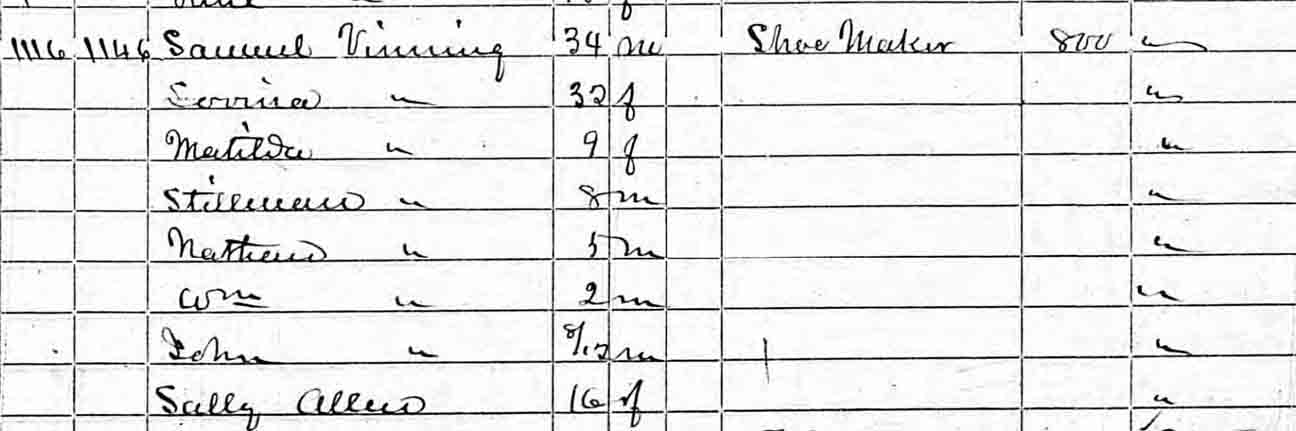 1116 1146 Samuel Vinning 34 m Shoe Maker 800 "
Lovina " 32 f "
Matilda " 9 f "
Stillman " 8 m "
Nathan " 5 m "
Wm " 2 m "
John " 8/12 m "
Sally Allen 16 f "